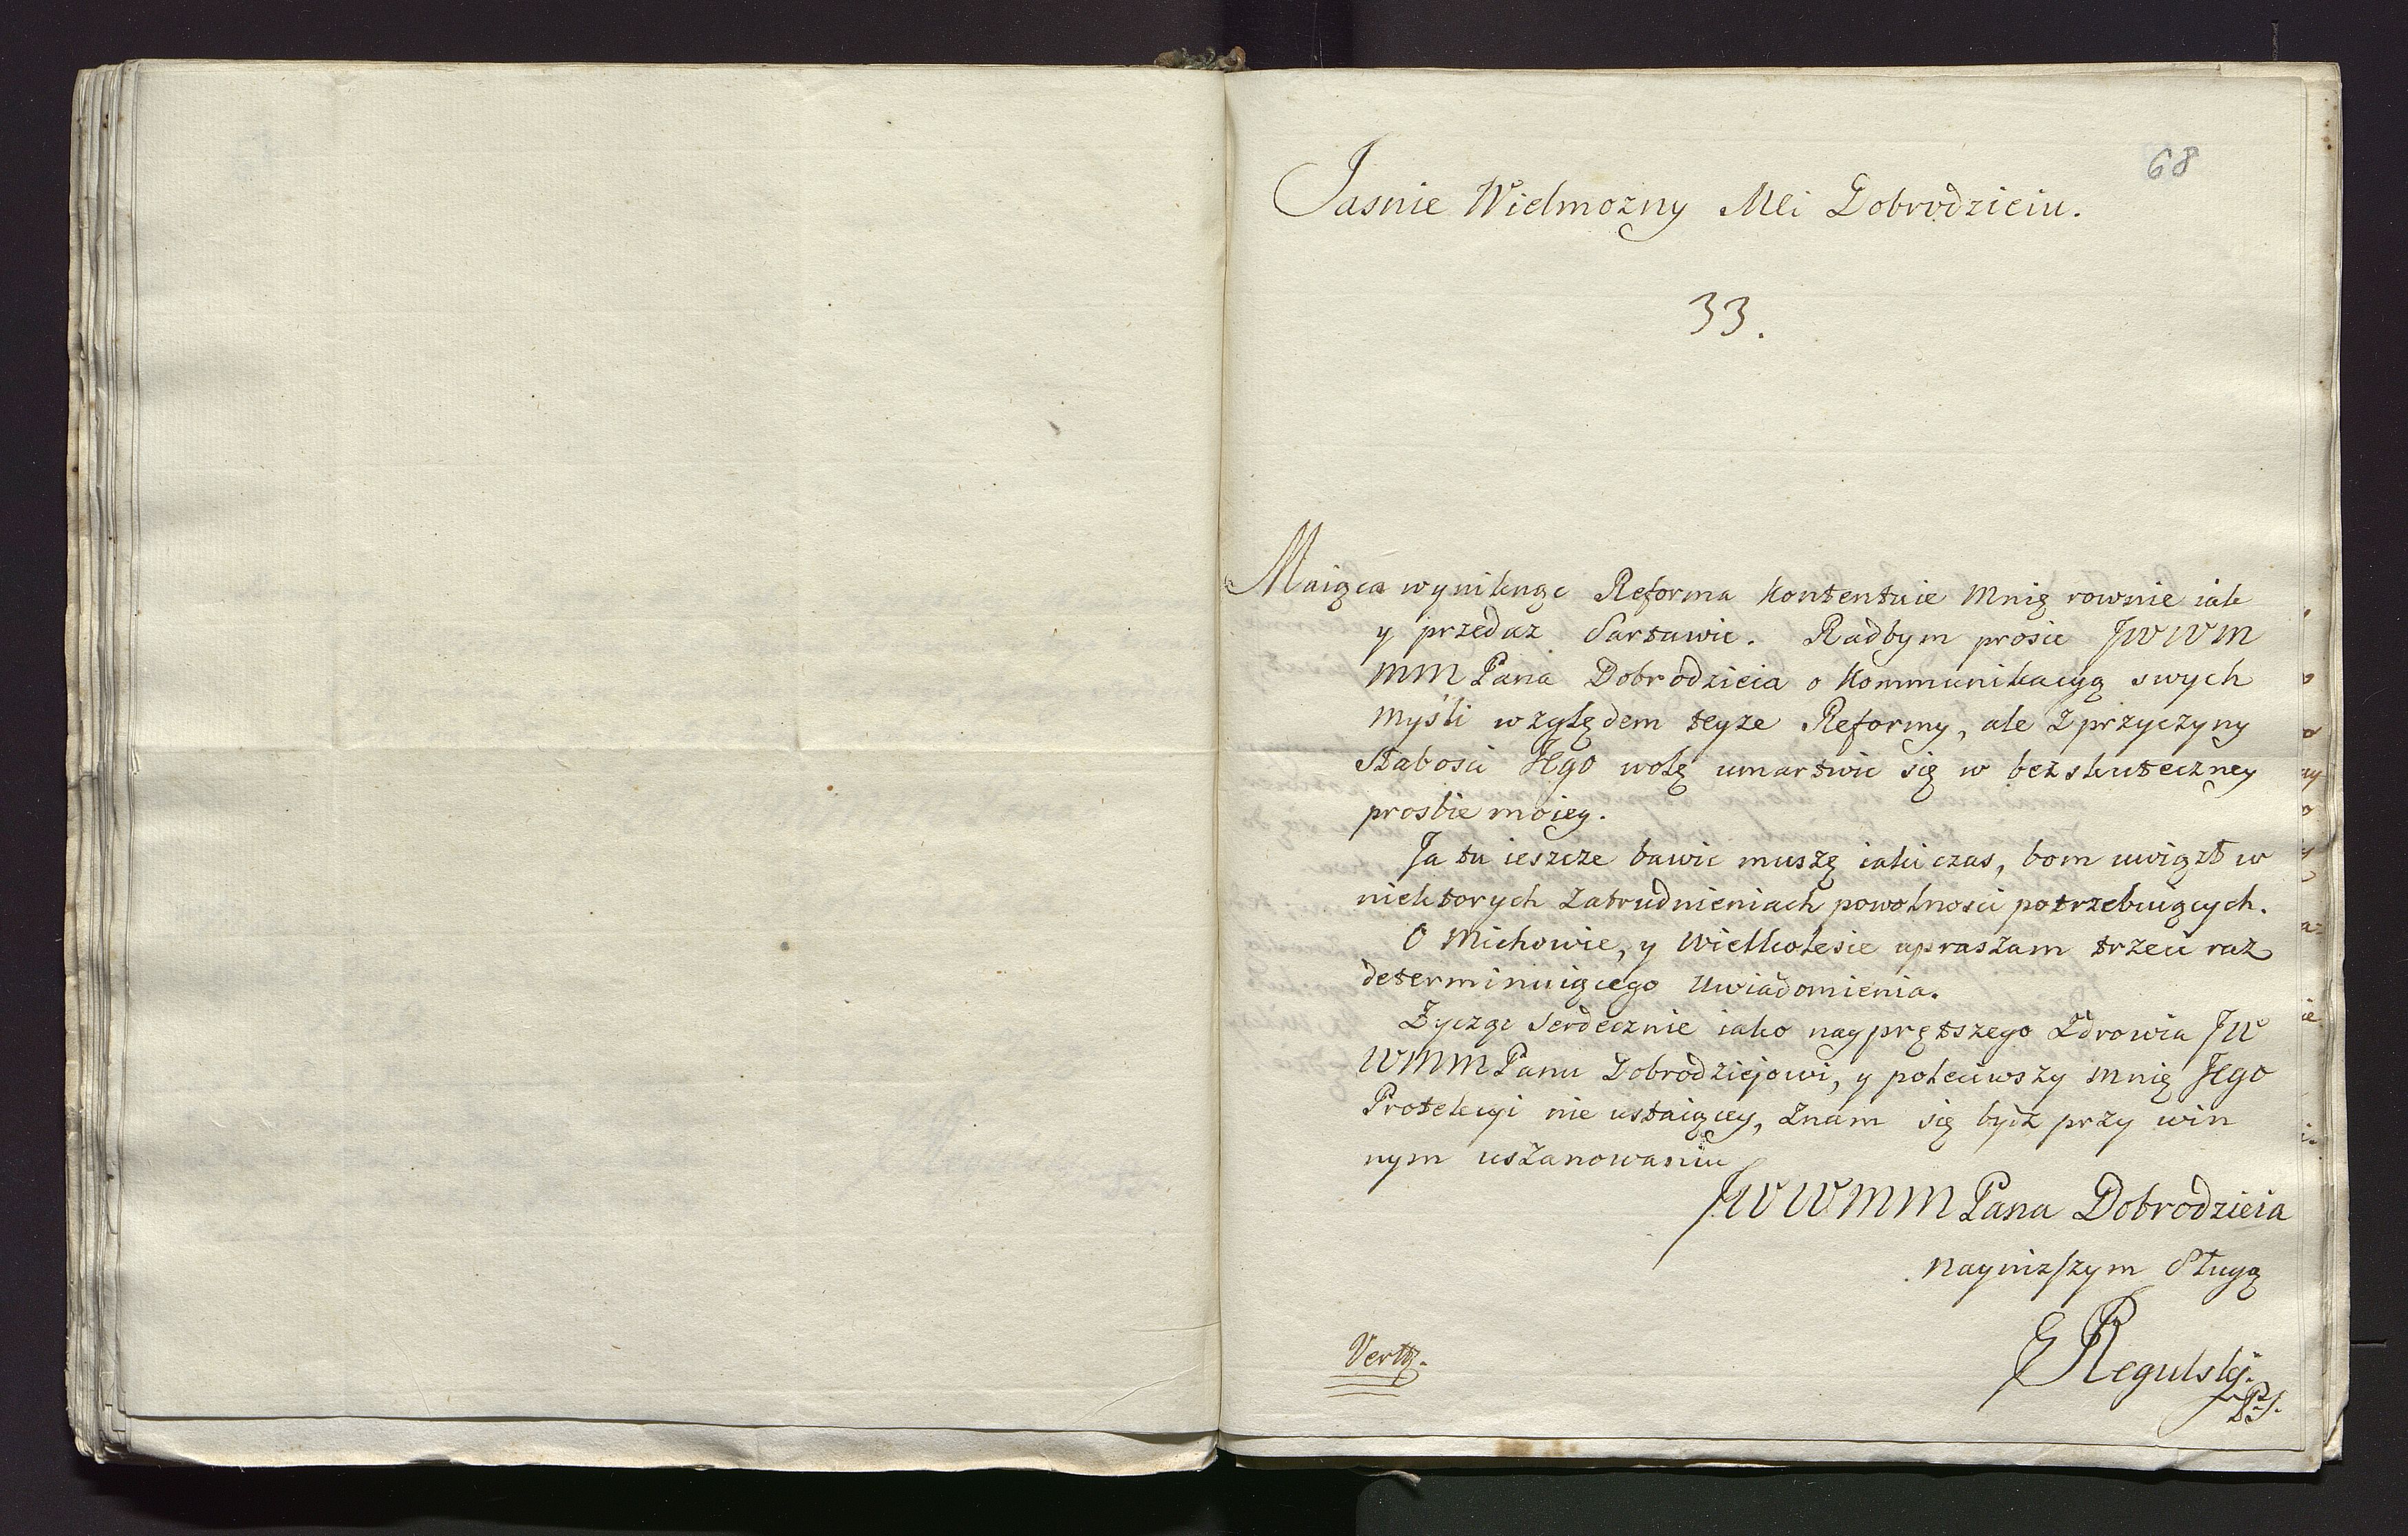 68
Jasnie Wielmozny Mci Dobrodzieiu.
33.
Maiąca wyniknąc Reforma kontentuie mnię rownie iak
y przedaz Sartawic. Radbym prosic JWWM
MM Pana Dobrodzieia o kommunikacyą swych
myśli względem teyze Reformy, ale z przyczyny
słabosci Jego wolę umartwic się w bezskuteczney
prosbie moiey.
Ja tu ieszcze bawic muszę iaki czas, bom uwiązł w
niektorych zatrudnieniach powolnosci potrzebuiących.
O Michowie, y Wielkolesie upraszam trzeci raz
determinuiącego uwiadomienia.
Zycząc serdecznie iako nayprętszego zdrowia JW
WMM Panu Dobrodziejowi, y poleciwszy mnię Jego
Protekcyi nie ustaiącey, znam się bydz przy win
nym uszanowaniu
JWWMM Pana Dobrodzieia
nayniższym sługą
E Regulski
Verte.